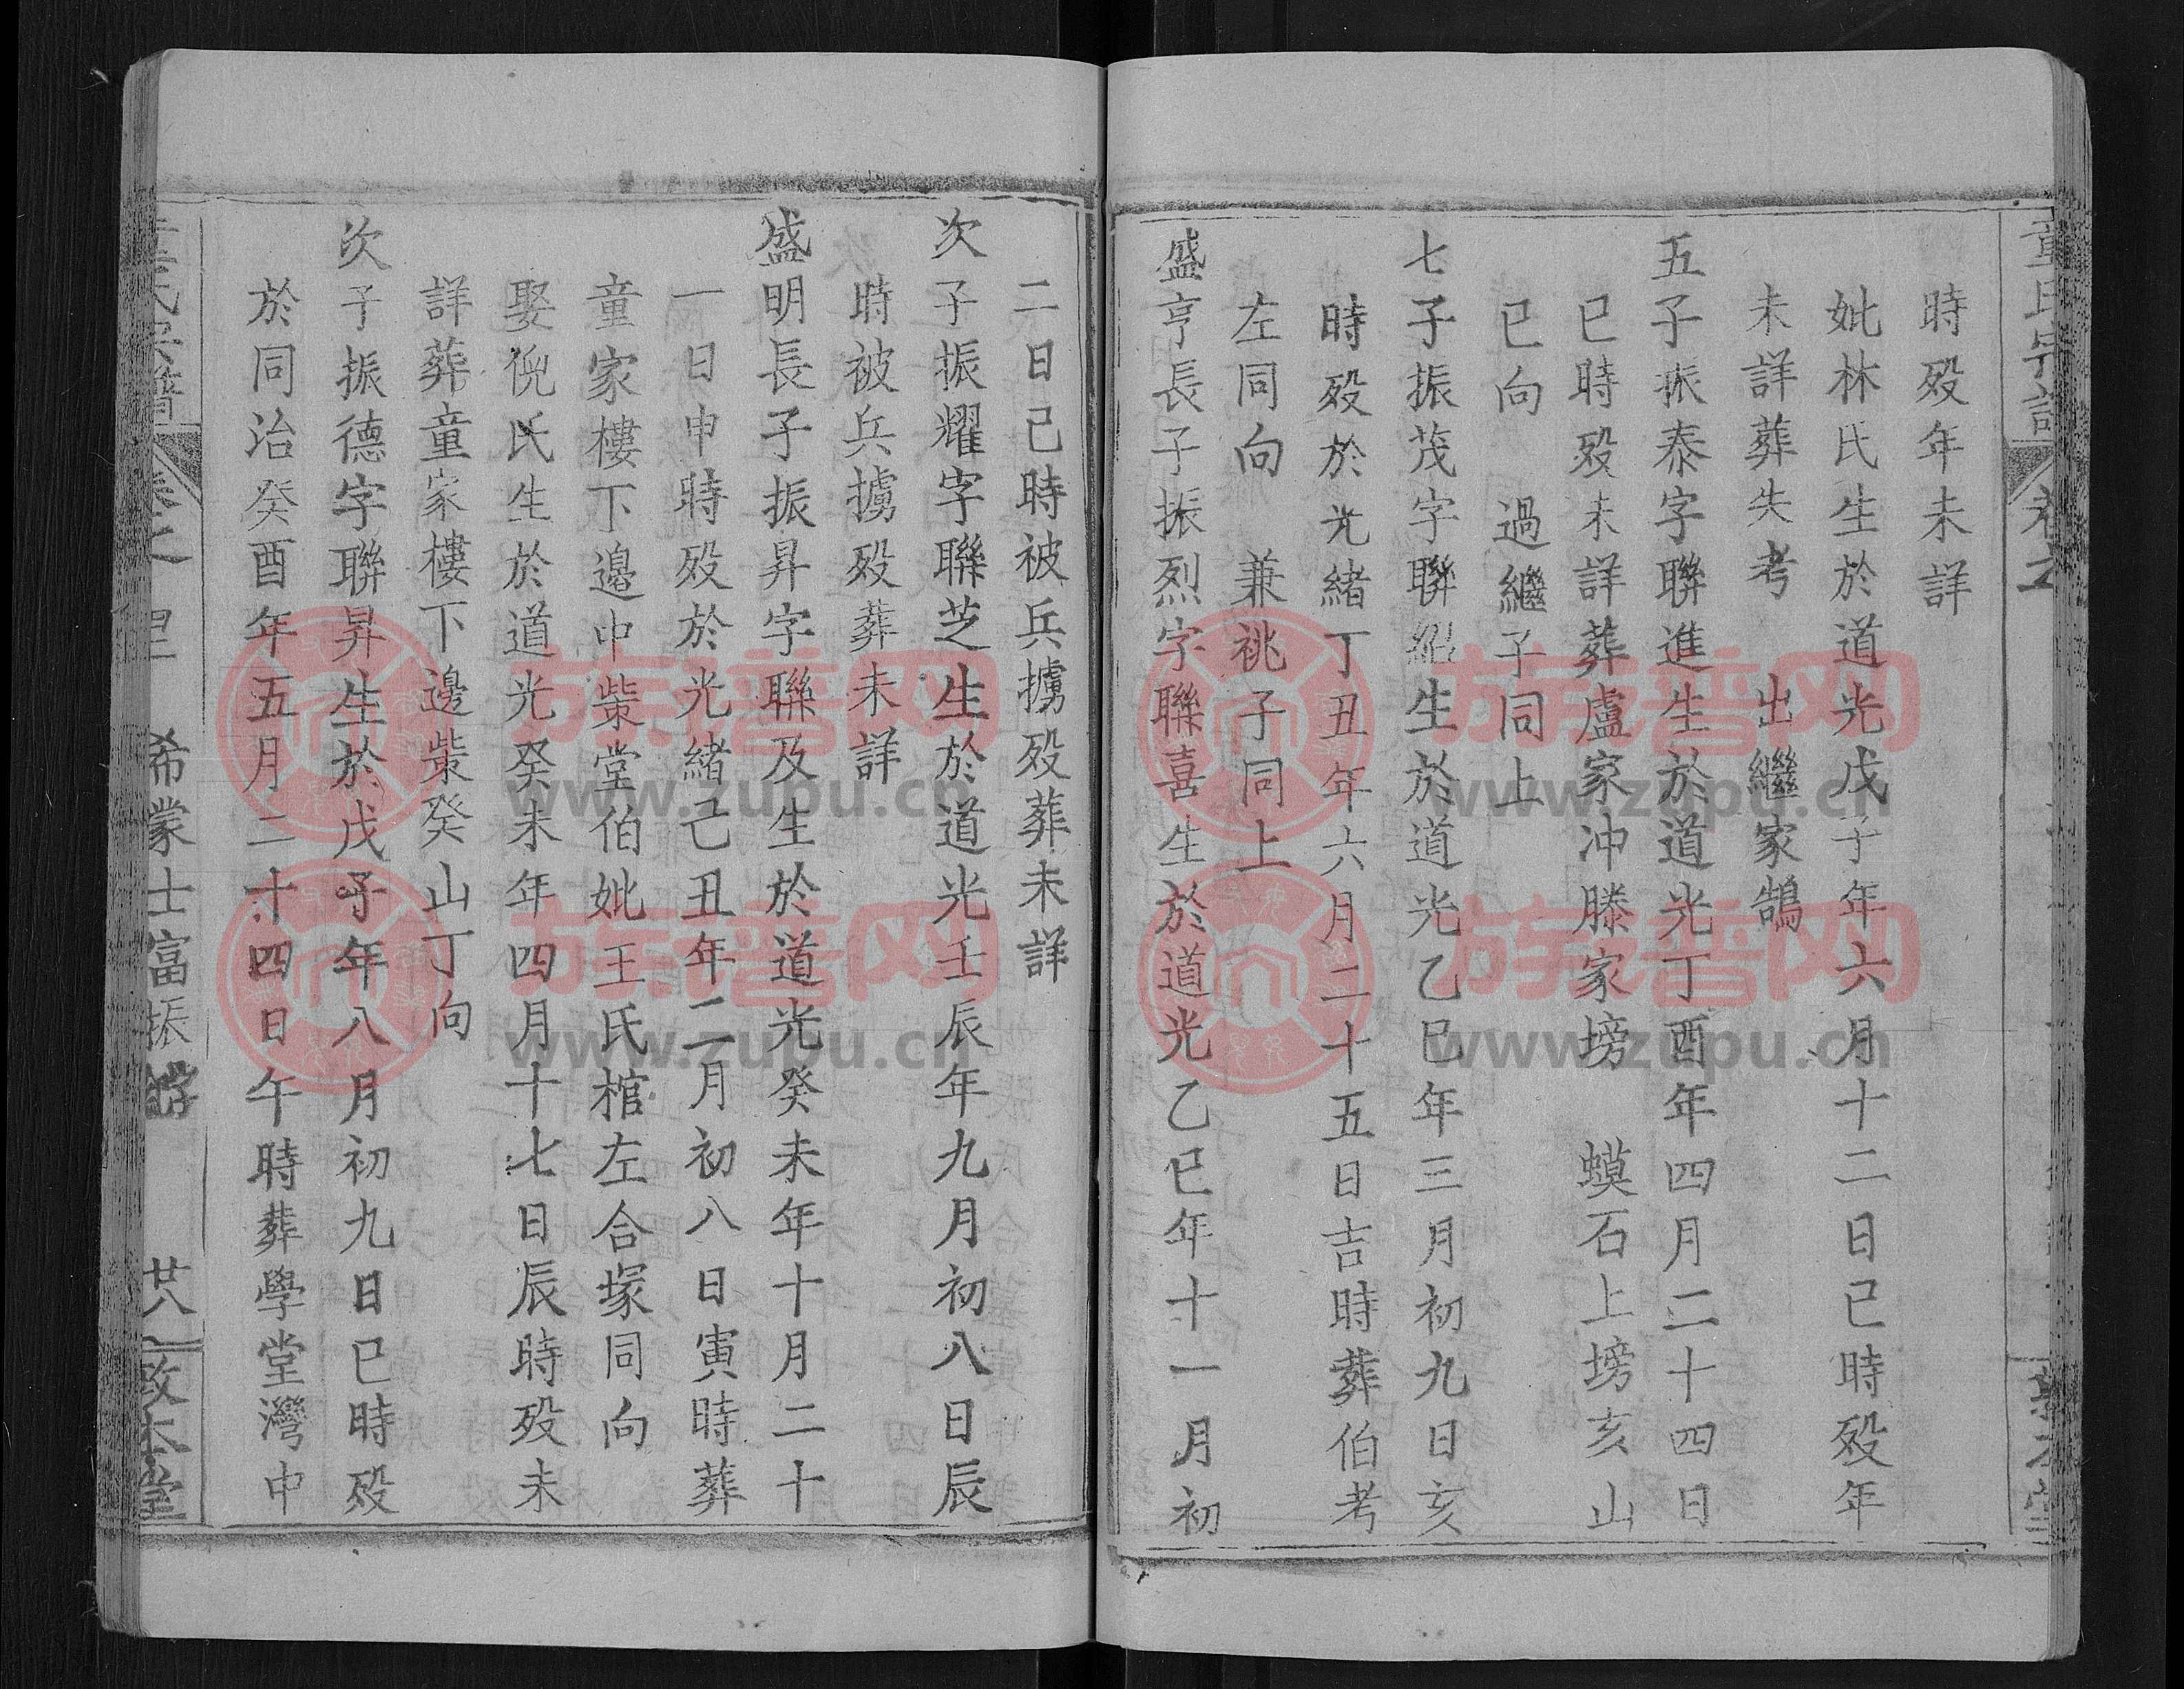 時殁年未詳
妣林氏生於道光戊子年六月十二日巳時殁年
未詳葬失考　出繼家鵠
五子振泰字聯進生於道光丁酉年四月二十四日
巳時殁未詳葬盧家冲滕家塝　蟆石上塝亥山
巳向　過繼子同上
七子振茂字聯紹生於道光乙巳年三月初九日亥
時殁於光緒丁丑年六月二十五日吉時葬伯考
左同向　兼祧子同上
盛亨長子振烈字聯喜生於道光乙巳年十一月初
二日己時被兵擄殁葬未詳
次子振耀字聯芝生於道光壬辰年九月初八日辰
時被兵擄殁葬未詳
盛明長子振昇字聯及生於道光癸未年十月二十
一日申時殁於光緒己丑年二月初八日寅時葬
童家樓下邉中柴堂伯妣王氏棺左合塚同向
娶倪氏生於道光癸未年四月十七日辰時殁未
詳葬童家樓下邉柴癸山丁向
次子振德字聯昇生於戊子年八月初九日巳時殁
於同治癸酉年五月二十四日午時葬學堂灣中
希蒙士富振
廿八
族谱网
www.zupu.cn
族谱网
www.zupu.cn
族谱网
www.zupu.cn
族谱网
www.zupu.cn